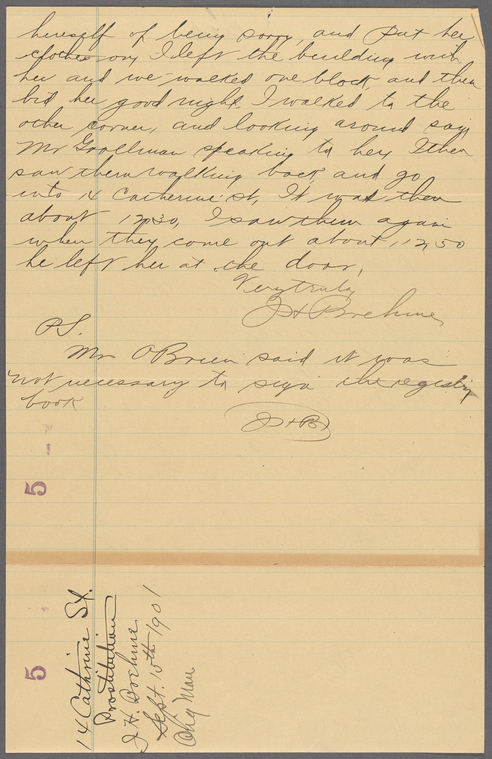 herself of being sorry, and put her
clothes on, I left the building with
her and we walked one block, and then
bid her good night. I walked to the
other corner, and looking around saw
Mr Goollman speaking to her, I then
saw them walking back and go
into 14 Catherine St, It was then
about 12.30, I saw them again
when they come out about, 12,50
he left her at the door,
Very truly
J H Boehme
P.S.
Mr OBrien said it was
not necessary to sign the registry
book
J H B
5
5
14 Cathrine St.
Prostitution
J. H. Boehme
Sept. 15th 1901